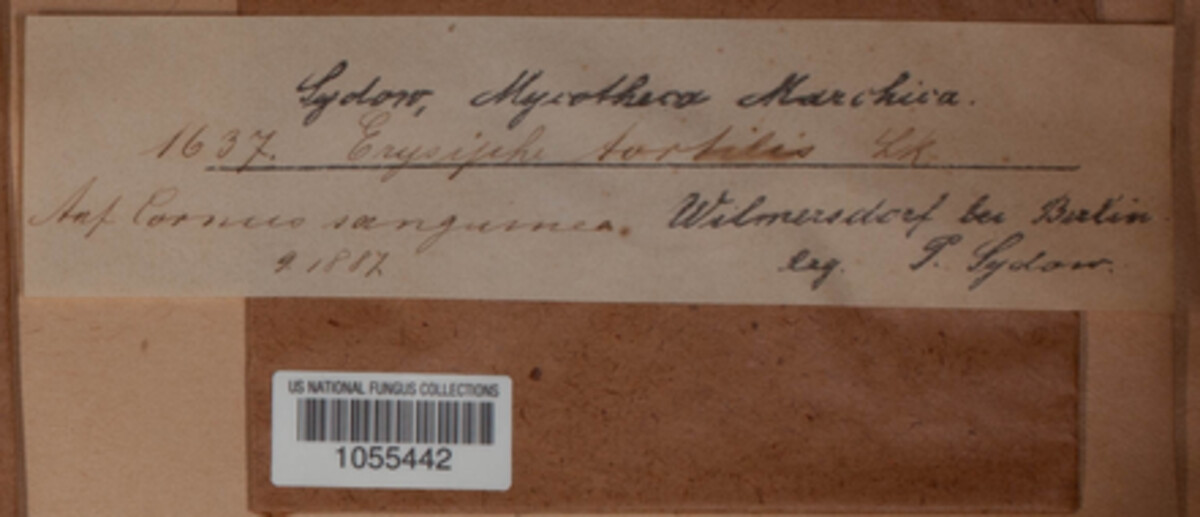 Sydow, Mycotheca Marchica.
1637. Erysiphe tortilis Lk.
Auf Cornus sanguinea. Wilmersdorf bei Berlin
9.1887 leg. P. Sydow.
US NATIONAL FUNGUS COLLECTIONS
1055442